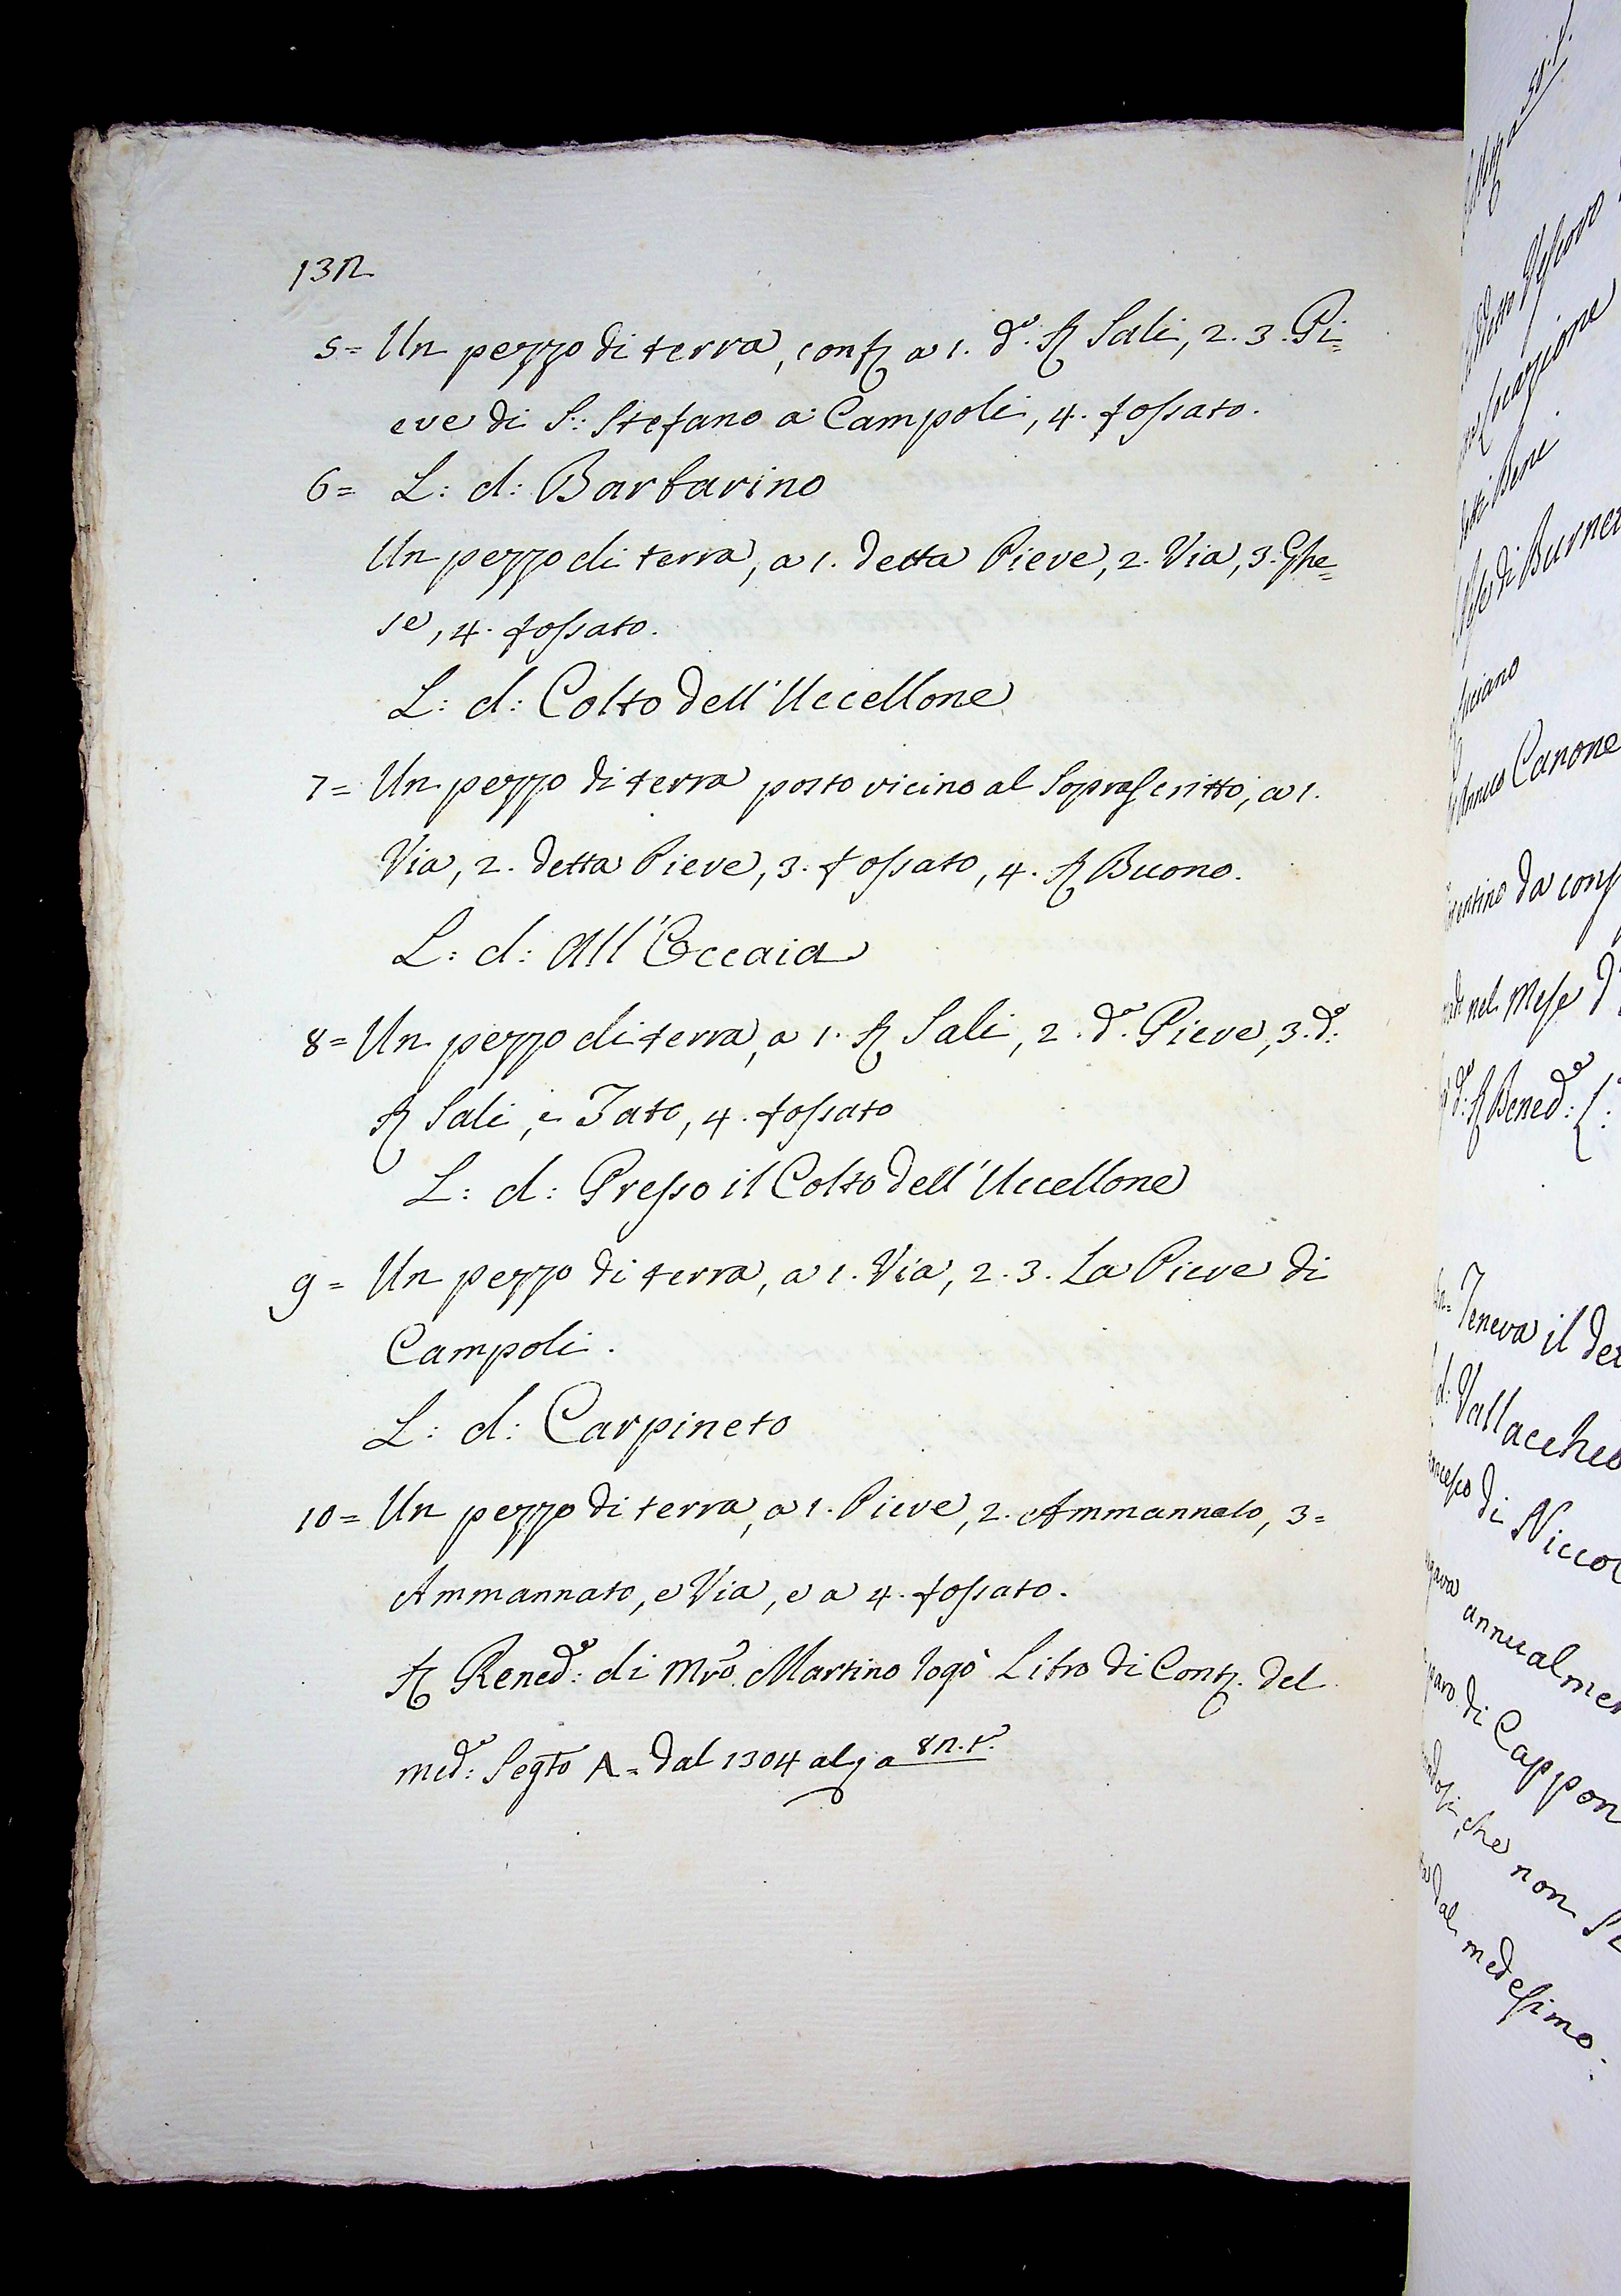 132
5= Un pezzo di terra, conf. a 1. d.o Ser Sali, 2. 3. Pi=
eve di S.: Stefano a Campoli, 4. fossato.
6= L: d: Barbarino
Un pezzo di terra, a 1. detta Pieve, 2. Via, 3. Ghe=
se, 4. fossato.
L: d: Colto dell'Uccellone
7= Un pezzo di terra posto vicino al Soprascritto, a 1.
Via, 2. detta Pieve, 3. fossato, 4. Ser Buono.
L: d: All'Occaia
8= Un pezzo di terra, a 1. Ser Sali, 2. d.o Pieve, 3. d.o:
Ser Sali, e Tato, 4. fossato
L: d: Presso il Colto dell'Uccellone
9= Un pezzo di terra, a 1. Via, 2. 3. La Pieve di
Campoli.
L: d: Carpineto
10= Un pezzo di terra, a 1. Pieve, 2. Ammannato, 3=
Ammannato, e Via, e a 4. fossato.
Ser Bened.o: di Mro. Martino rogò Libro di Contr. del
med.o: Segto A= dal 1304 al 9 a 82. t.o
Vescovo
Locazione
detti Beni.
Mese di Burnet
Luciano
annuo Canone
da conf
nel Mese d'
d.o: Ser Bened.o:
Teneva il der
d: Vallacchio
di Niccol
annualmen
di Cappon
che non Si
dal medesimo.